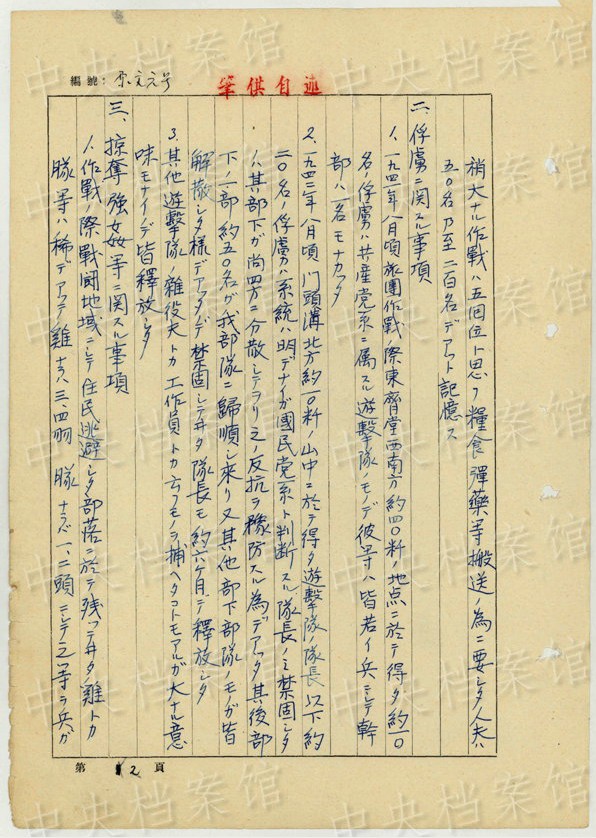 編號：
筆供自述
稍大ナル作戰ハ五回位ト思フ糧食彈藥等搬送ノ為ニ要シタ人夫ハ
五〇名乃至二百名デアツタト記憶ス
二、俘虜ニ関スル事項
1、一九四一年八月頃旅團作戰ノ際東齊堂西南方約四〇粁ノ地点ニ於テ得タ約一〇
名ノ俘虜ハ共産党系ニ属スル遊擊隊ノモノデ彼等ハ皆若イ兵ニシテ幹
部ハ一名モナカツタ
2、一九四二年八月頃門頭溝北方約一〇粁ノ山中ニ於テ得タ遊擊隊ノ隊長以下約
二〇名ノ俘虜ハ系統ハ明デナイガ國民党系ト判断スル隊長ノミ禁固シタ
ノハ其部下ガ尚四方ニ分散シテヲリ之ノ反抗ヲ豫防スル為デアツタ其後部
下ノ一部約五〇名ガ我部隊ニ歸順シ来リ又其他部下部隊ノモガ皆
解散シタ様デアツタノデ禁固シテヰタ隊長モ約六ヶ月デ釋放シタ
3、其他遊擊隊ノ雜役夫トカ工作員トカ云フモノヲ捕ヘタコトモアルガ大ナル意
味モナイノデ皆釋放シタ
三、掠奪強姦等ニ関スル事項
1、作戰ノ際戰闘地域ニシテ住民逃避シタ部落ニ於テ残ツテヰタ雞トカ
豚等ハ稀デアツテ雞ナラバ三、四羽豚ナラバ一、二頭ニシテ之等ヲ兵ガ
第 12 頁
中央档案馆